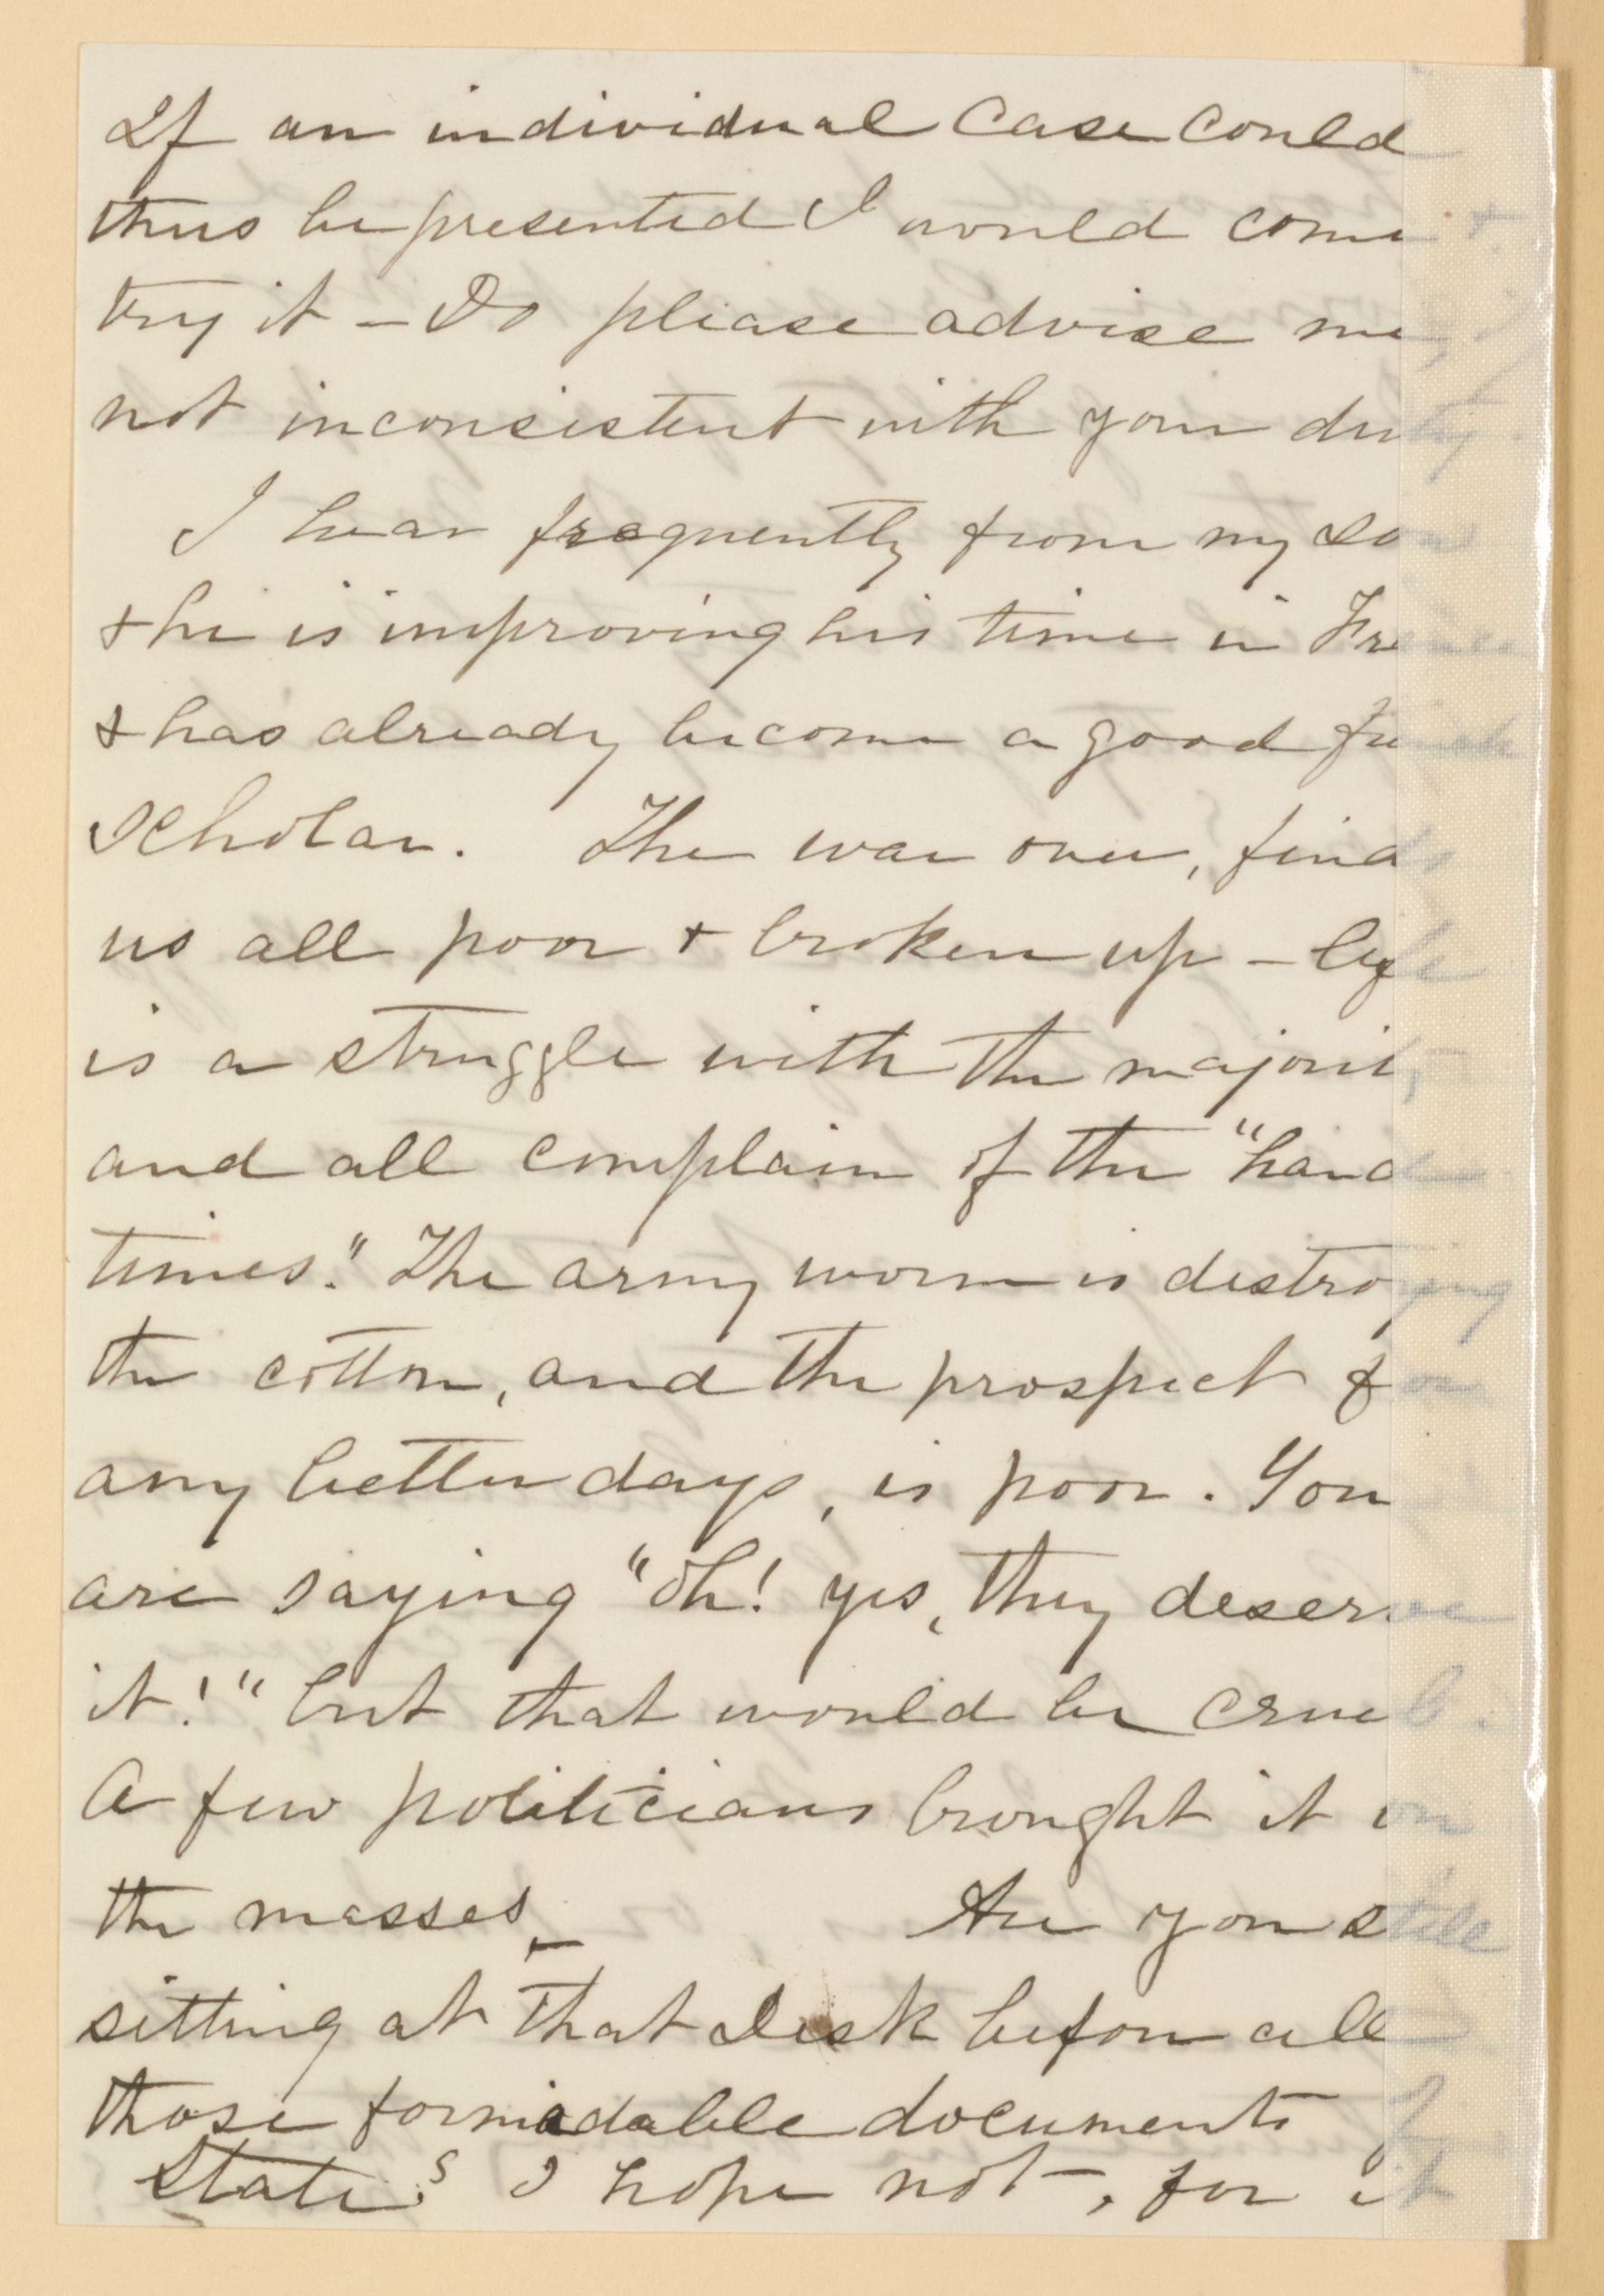 If an individual case could
thus be presented I would come +
try it – Do please advise me,
not inconsistent with your duty.
I hear frequently from my son
+ he is improving his time in France
+ has already become a good french
scholar. The war over, finds
us all poor + broken up – life
is a struggle with the majority
and all complain of the "hard
times." The army worm is destroying
the cotton, and the prospect for
any better days, is poor. You
are saying "oh! yes, they deserve
it!" but that would be cruel.
A few politicians brought it on
the masses –
Are you still
sitting at that desk before all
those formidable documents of
State? I hope not, for it